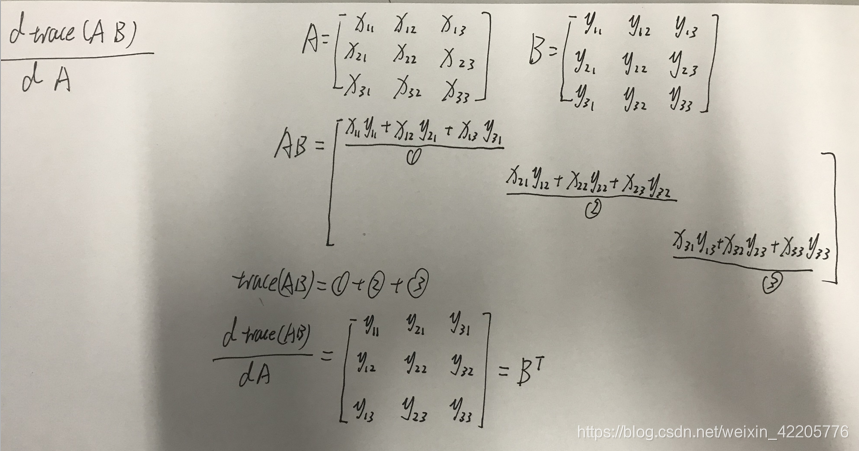 d trace(AB)
dA
A = [ x₁₁ x₁₂ x₁₃
x₂₁ x₂₂ x₂₃
x₃₁ x₃₂ x₃₃ ]
B = [ y₁₁ y₁₂ y₁₃
y₂₁ y₂₂ y₂₃
y₃₁ y₃₂ y₃₃ ]
AB = [ x₁₁y₁₁ + x₁₂y₂₁ + x₁₃y₃₁
①
x₂₁y₁₂ + x₂₂y₂₂ + x₂₃y₃₂
②
x₃₁y₁₃ + x₃₂y₂₃ + x₃₃y₃₃ ]
③
trace(AB) = ① + ② + ③
d trace(AB)
dA
= [ y₁₁ y₂₁ y₃₁
y₁₂ y₂₂ y₃₂
y₁₃ y₂₃ y₃₃ ] = Bᵀ
https://blog.csdn.net/weixin_42205776